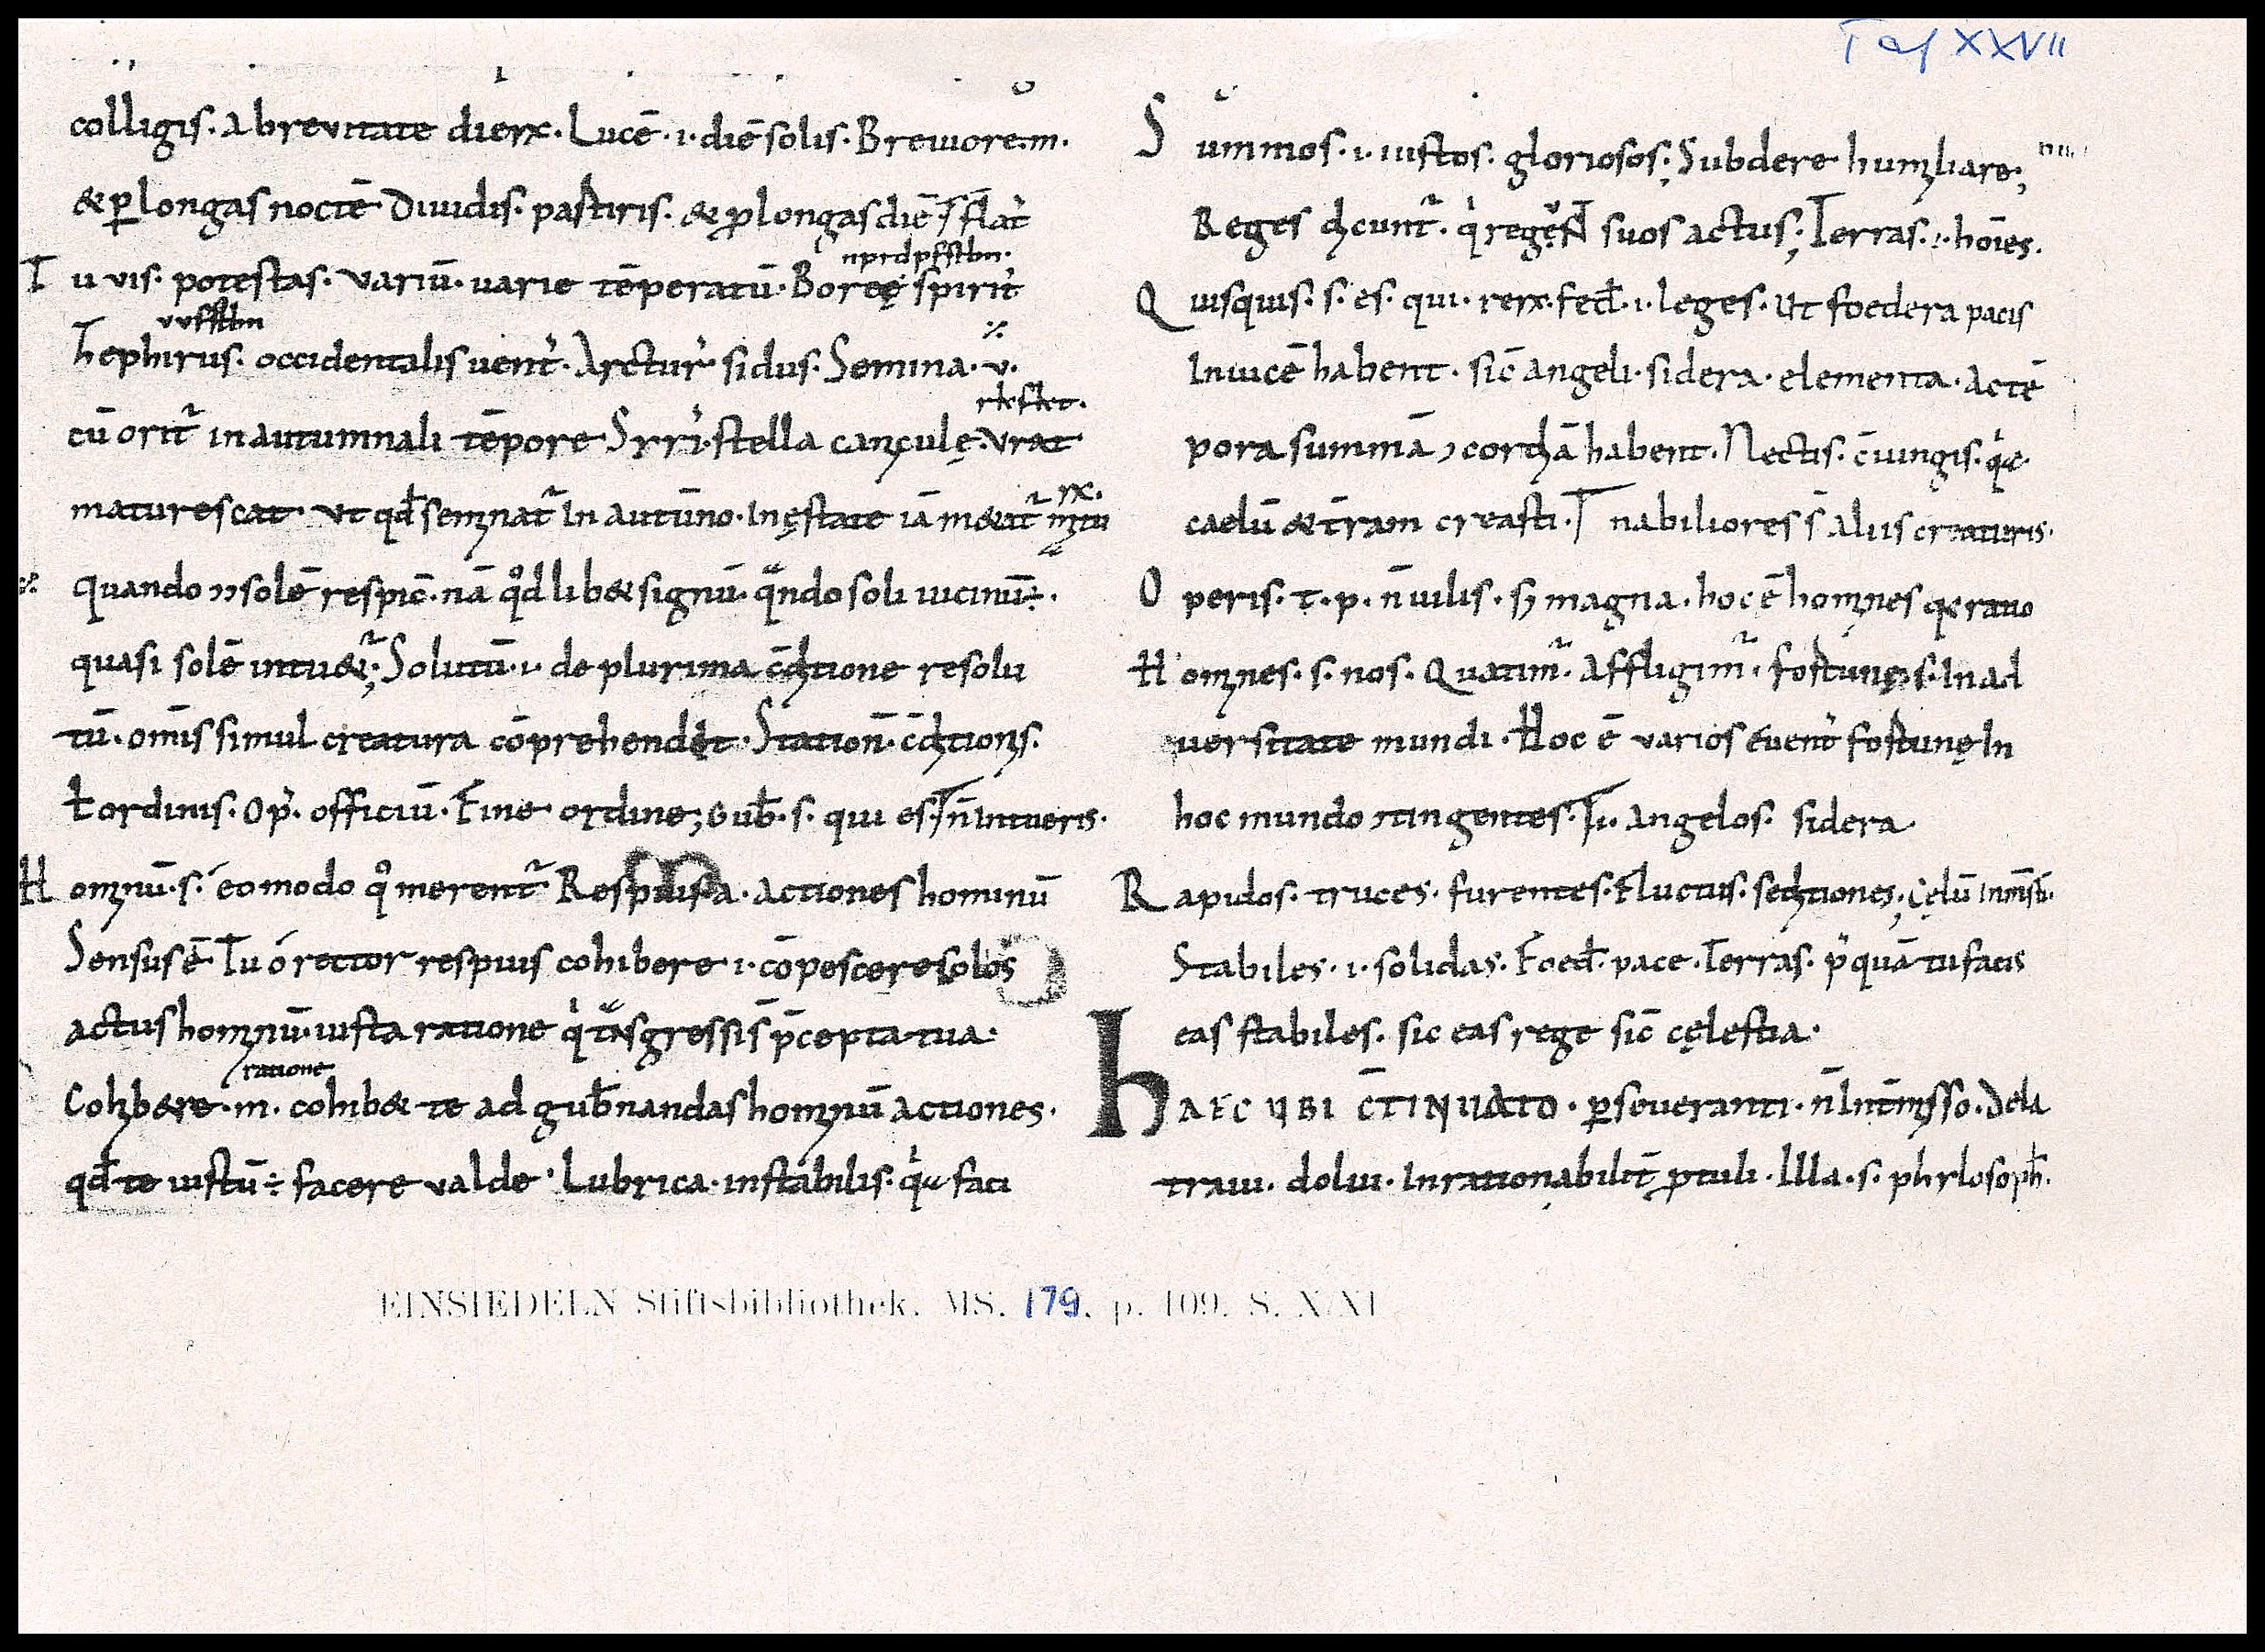 Taf XXVII
colligis. Abreuitate dierꝝ. Lucē .i. diē solis. Breuiorem.
& ꝑlongas noctē Diuidis. partiris. & ꝓlongas diē
nprdpfstbn.
Tu vis. potestas. Variū. uarie tēperatū. Boreę spirit'
vvfstbn
Zephirus. occidentalis uent'. Arctur' sidus. Semina. v.
rkfkt.
cū orit᷑ in autumnali tēpore Syri'. stella caniculę. Vrat
maturescat. Vt qđ seminat᷑ In autūno. Inęstate iā
quando solē respic̄. nā qͦdlib& signū. qͣndo soli uicinū ÷.
quasi solē intu&᷑; Solutū .i. de plurima c̄ditione resolu
tū. om̄is simul creatura cōprehendęt. Station̄. c̄ditionis.
ł ordinis. Op'. officiū. Fine ordine; Gub̄. s. qui es. n̄ Intueris.
Hominū. s. eo modo qͦ merent᷑ Respuis a. actiones hominū
Sensus ē Tu ó rector respuis cohibere .i. cōpescere solos
actus hominū. iusta ratione qͥ trͣsgressi s̄ p̄cepta tua.
ratione
Cohibere. m. cohib& te ad gub̄nandas hominū actiones.
qđ te iustū ÷ facere valde. Lubrica. instabilis. faci
Summos .i. iustos. gloriosos; Subdere humiliare;
Reges dicunt᷑. qͥ regeͬnt suos actus; Terras .i. hōies.
Quisquis. s. es. qui. rerꝝ. fed̄ .i. leges. Ut foedera pacis
Inuicē habent. sic̄ angeli. sidera. elementa. ac tē
pora summā ɔcordiā habent. Nectis. c̄iungis.
caelū & tr̄am creasti. nabiliores s̄ aliis creaturis.
Operis. t. p. n̄ uilis. sꝫ magna. hoc ē homines
Homines. s. nos. Quatim᷑. Affligim᷑. fortunę s. In ad
uersitate mundi. Hoc ē varios euent' fortunę In
hoc mundo ɔtingentes. Angelos. sidera.
Rapidos. truces. furentes. Fluctus. seditiones; Cęlū
Stabiles .i. solidas. Foed̄. pace. Terras. pͥ quā tu facis
eas stabiles. sic eas rege sic̄ cęlestia.
HAEC UBI C̄TINUATO. ꝑseueranti. n̄ Int̄misso. Dela
traui. dolui. Inrationabilit̄ ꝓtuli. Illa. s. phylosoph̄.
EINSIEDELN Stiftsbibliothek. MS. 179. p. 109. S. X/XI